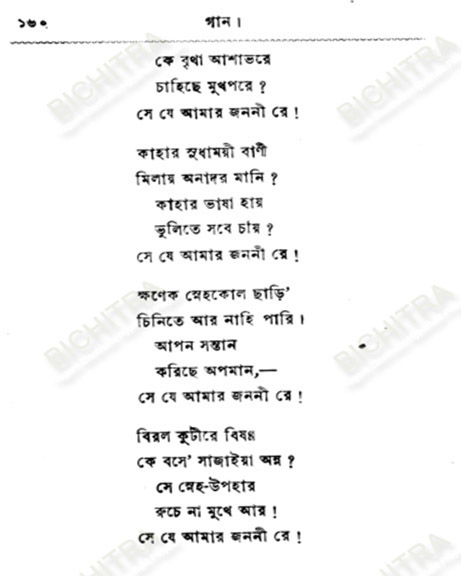 ১৬০ গান ।
কে বৃথা আশাভরে
চাহিছে মুখপরে ?
সে যে আমার জননী রে !
কাহার সুধাময়ী বাণী
মিলায় অনাদর মানি ?
কাহার ভাষা হায়
ভুলিতে সবে চায় ?
সে যে আমার জননী রে !
ক্ষণেক স্নেহকোল ছাড়ি’
চিনিতে আর নাহি পারি ।
আপন সন্তান
করিছে অপমান,—
সে যে আমার জননী রে !
বিরল কুটীরে বিষণ্ণ
কে বসে’ সাজাইয়া অন্ন ?
সে স্নেহ-উপহার
রুচে না মুখে আর !
সে যে আমার জননী রে !
BICHITRA
BICHITRA
BICHITRA
BICHITRA
BICHITRA
BICHITRA